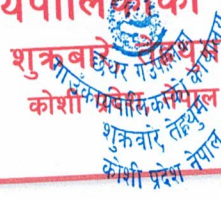 यपालिकाको
शुक्रबारे, तेह्रथुम
कोशी प्रदेश, नेपाल
गाउँ कार्यपालिकाको कार्यालय
शुक्रबारे, तेह्रथुम
कोशी प्रदेश, नेपाल